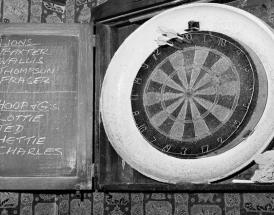 LIONS
BAXTER
WALLIS
THOMPSON
FRASER
HOOP & G's.
LOTTIE
TED
HETTIE
CHARLES